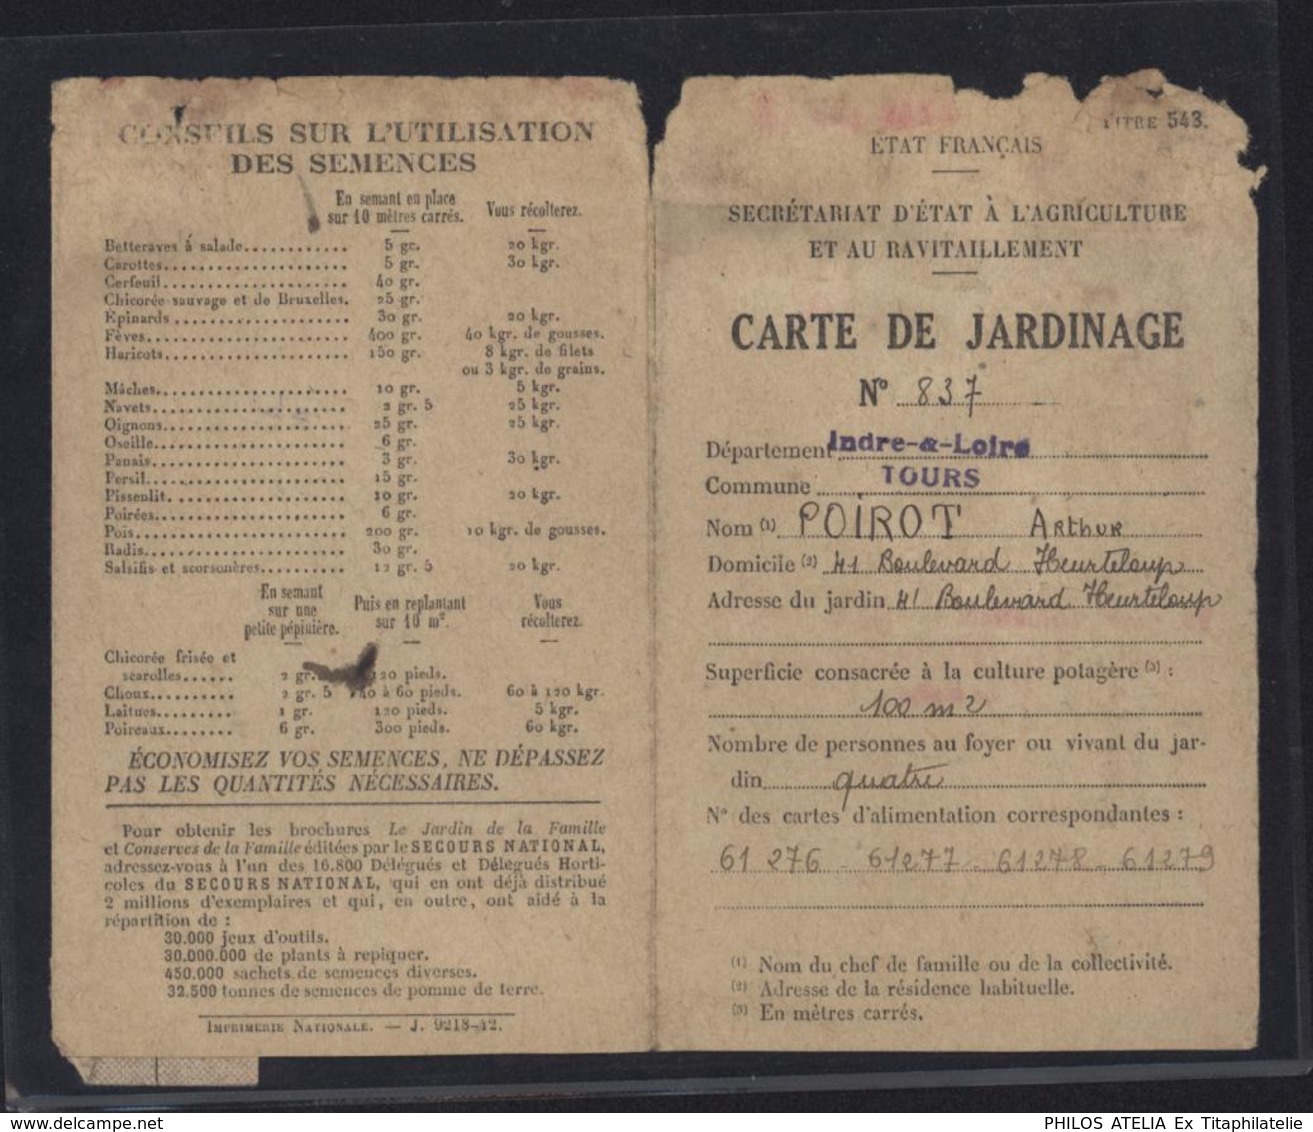 CONSEILS SUR L'UTILISATION
DES SEMENCES
En semant en place
sur 10 mètres carrés.
Vous récolterez.
Betteraves à salade............ 5 gr. 20 kgr.
Carottes..................... 5 gr. 30 kgr.
Cerfeuil..................... 40 gr.
Chicorée sauvage et de Bruxelles. 25 gr.
Épinards.................... 30 gr. 20 kgr.
Fèves....................... 400 gr. 40 kgr. de gousses.
Haricots..................... 150 gr. 8 kgr. de filets
ou 3 kgr. de grains.
Mâches...................... 10 gr. 5 kgr.
Navets...................... 2 gr. 5 25 kgr.
Oignons..................... 25 gr. 25 kgr.
Oseille...................... 6 gr.
Panais...................... 3 gr. 30 kgr.
Persil....................... 15 gr.
Pissenlit..................... 10 gr. 20 kgr.
Poirées...................... 6 gr.
Pois......................... 200 gr. 10 kgr. de gousses.
Radis....................... 30 gr.
Salsifis et scorsonères.......... 12 gr. 5 20 kgr.
En semant
sur une
petite pépinière.
Puis en replantant
sur 10 m².
Vous
récolterez.
Chicorée frisée et
scarolles...... 2 gr. 120 pieds.
Choux.......... 2 gr. 5 40 à 60 pieds. 60 à 120 kgr.
Laitues......... 1 gr. 120 pieds. 5 kgr.
Poireaux........ 6 gr. 300 pieds. 60 kgr.
ÉCONOMISEZ VOS SEMENCES, NE DÉPASSEZ
PAS LES QUANTITÉS NÉCESSAIRES.
Pour obtenir les brochures Le Jardin de la Famille
et Conserves de la Famille éditées par le SECOURS NATIONAL,
adressez-vous à l'un des 16.800 Délégués et Délégués Horti-
coles du SECOURS NATIONAL, qui en ont déjà distribué
2 millions d'exemplaires et qui, en outre, ont aidé à la
répartition de :
30.000 jeux d'outils.
30.000.000 de plants à repiquer.
450.000 sachets de semences diverses.
32.500 tonnes de semences de pomme de terre.
IMPRIMERIE NATIONALE. — J. 9218-42.
TITRE 543.
ÉTAT FRANÇAIS
SECRÉTARIAT D'ÉTAT À L'AGRICULTURE
ET AU RAVITAILLEMENT
CARTE DE JARDINAGE
N° 837
Département Indre-&-Loire
Commune TOURS
Nom (1) POIROT Arthur
Domicile (2) 41 Boulevard Heurteloup
Adresse du jardin 41 Boulevard Heurteloup
Superficie consacrée à la culture potagère (3) :
100 m2
Nombre de personnes au foyer ou vivant du jar-
din quatre
N° des cartes d'alimentation correspondantes :
61 276 - 61277 - 61278 - 61279
(1) Nom du chef de famille ou de la collectivité.
(2) Adresse de la résidence habituelle.
(3) En mètres carrés.
www.delcampe.net
PHILOS ATELIA Ex Titaphilatelie